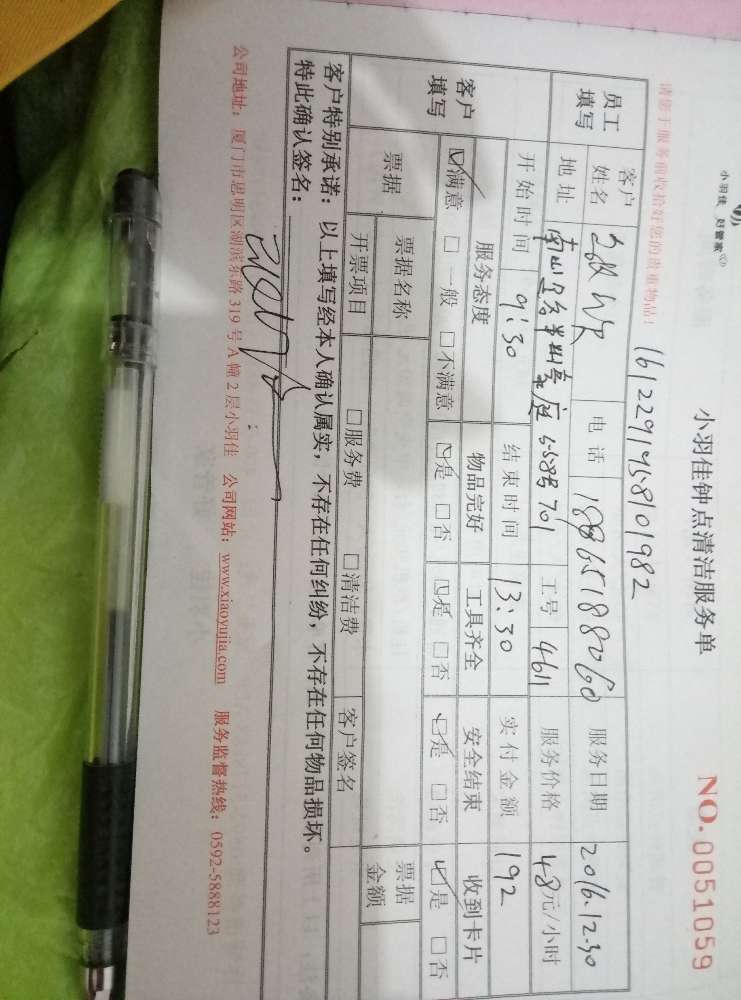 小羽佳 好管家
小羽佳钟点清洁服务单
NO. 0051059
请您于服务前收拾好您的贵重物品！
1612291958101982
员工填写
客户姓名 电话 服务日期 2016.12.30
地址 558号701 工号 4611 服务价格 48元/小时
开始时间 9:30 结束时间 13:30 实付金额 192
客户填写
服务态度 物品完好 工具齐全 安全结束 收到卡片
☑满意 □一般 □不满意 ☑是 □否 ☑是 □否 ☑是 □否 ☑是 □否
票据 票据名称 票据金额
开票项目 □服务费 □清洁费 客户签名
客户特别承诺：以上填写经本人确认属实，不存在任何纠纷，不存在任何物品损坏。
特此确认签名：
公司地址：厦门市思明区湖滨东路319号A幢2层小羽佳 公司网站：www.xiaoyujia.com 服务监督热线：0592-5888123